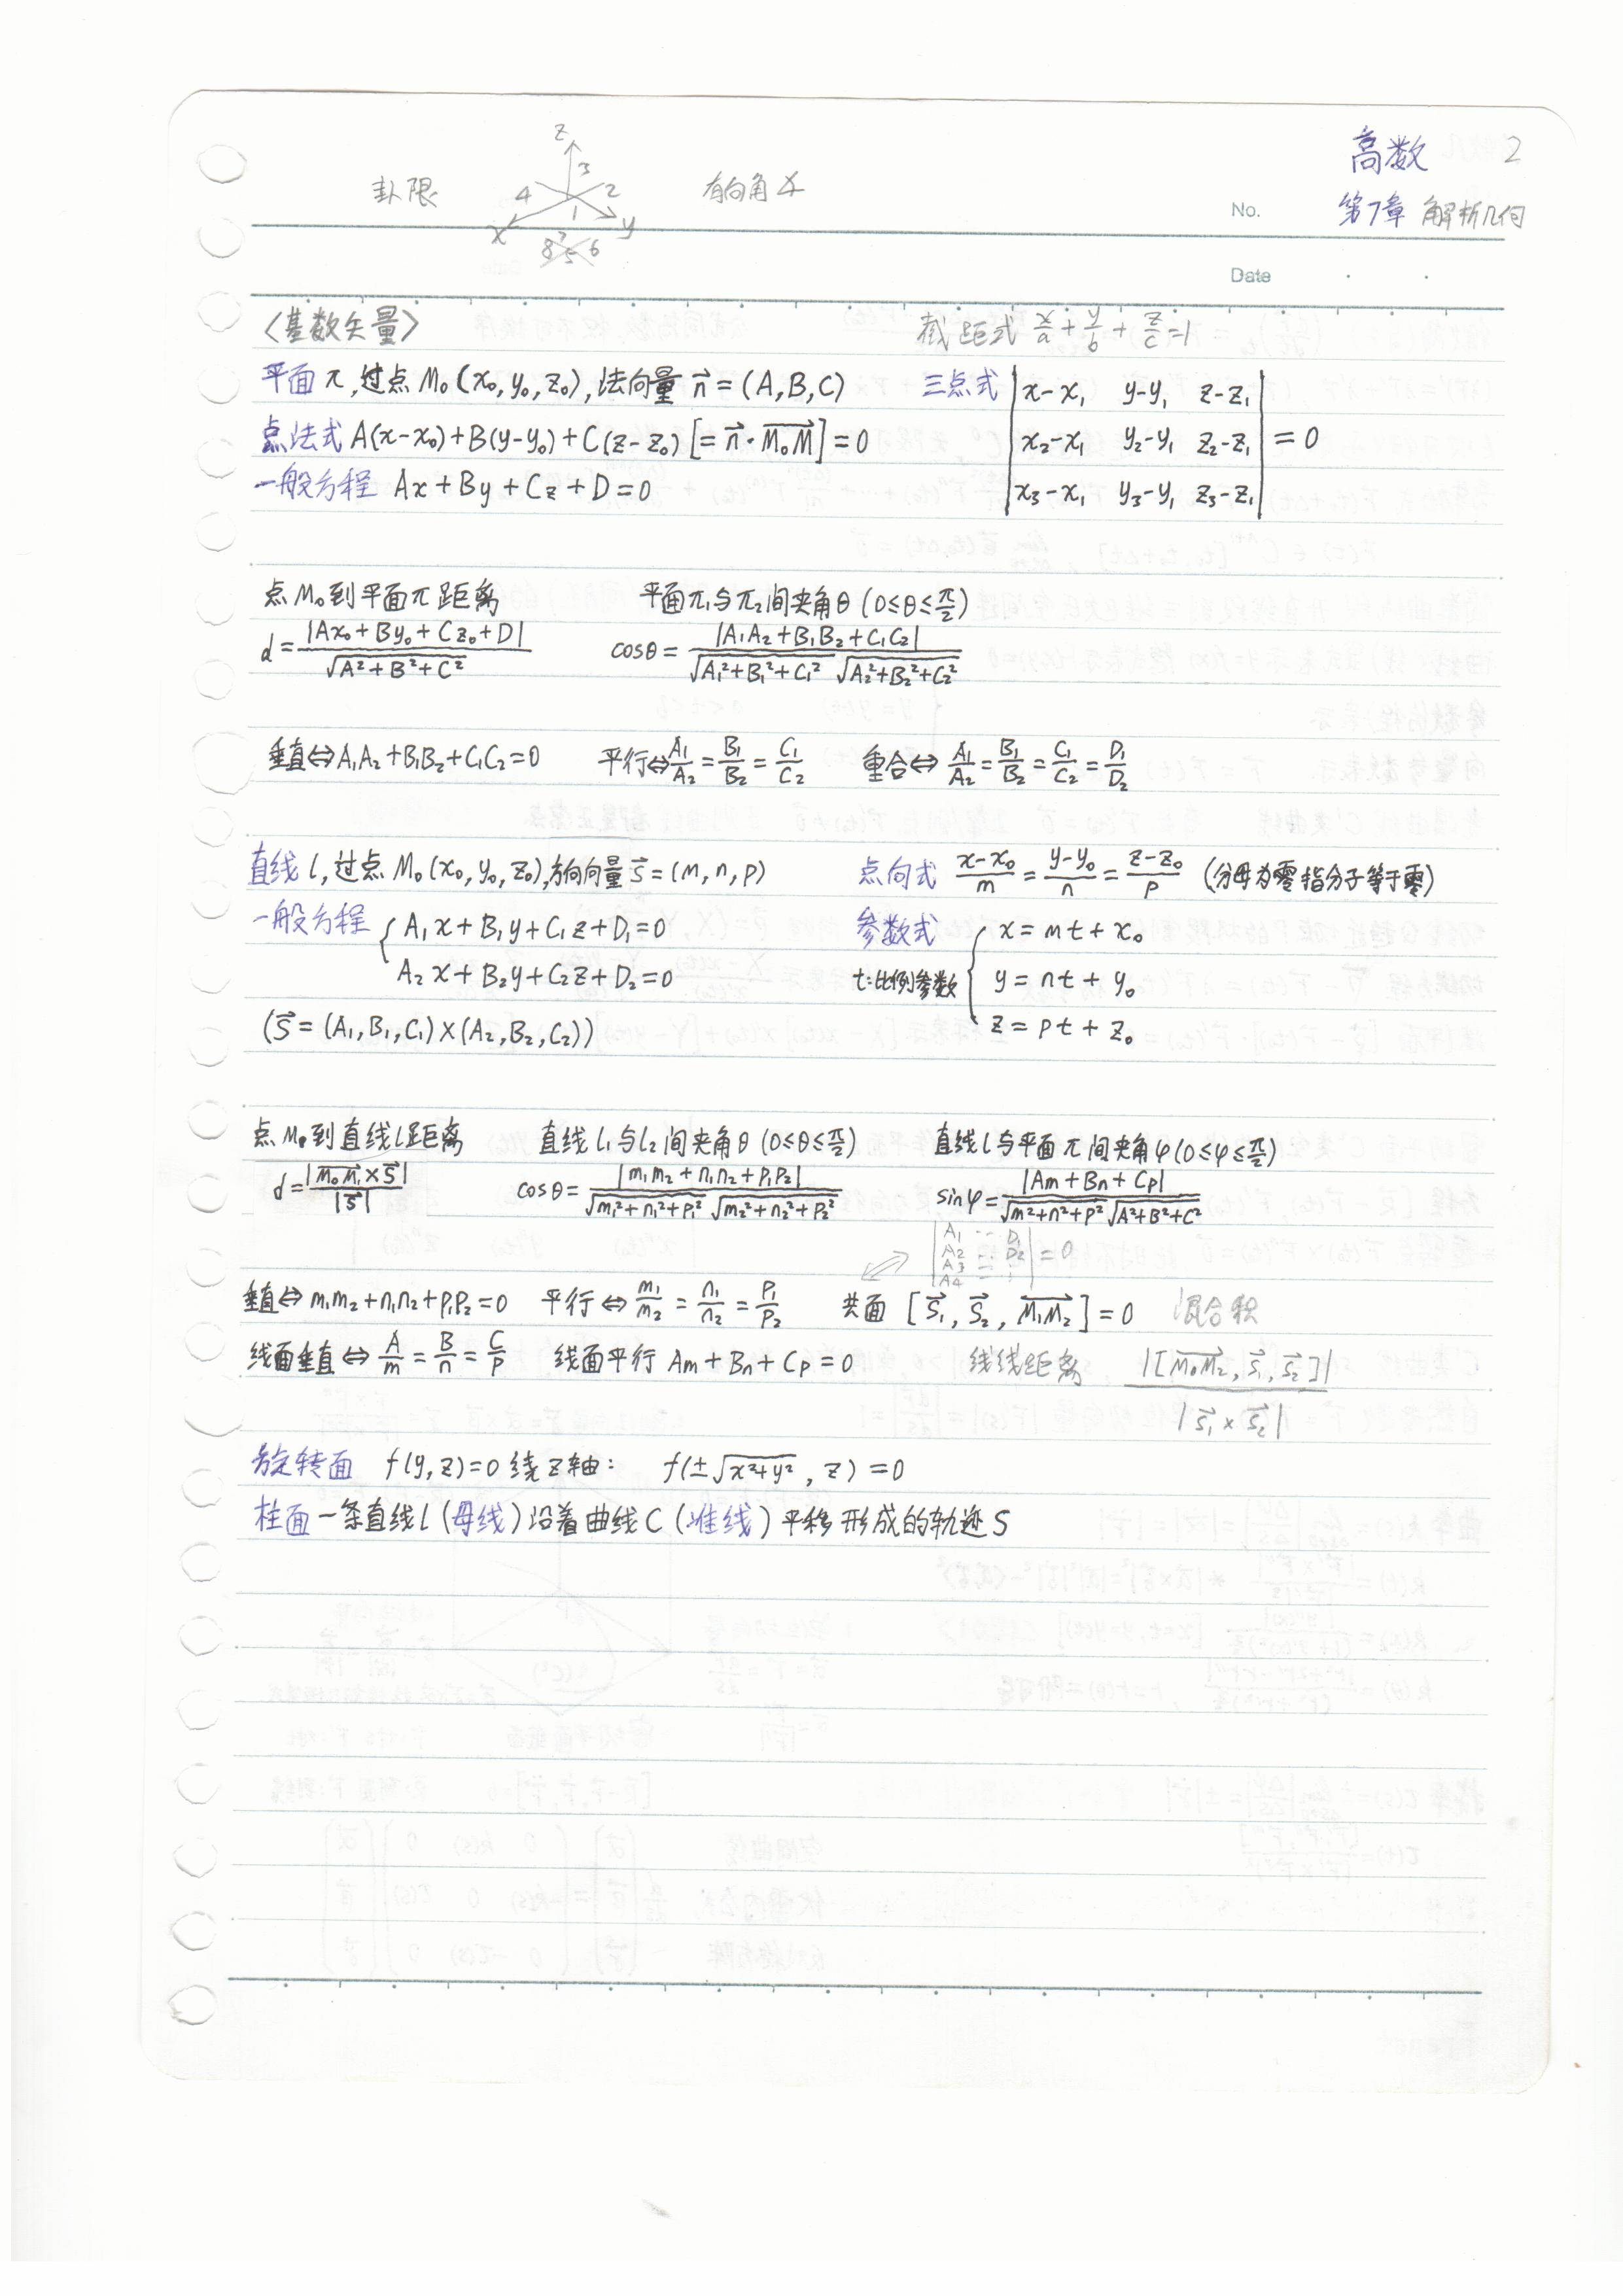 高数 2
第7章 解析几何
卦限
z
3
4 2
1
x y
7
8 5 6
有向角∡
No.
Date
〈基数矢量〉
截距式 x/a + y/b + z/c = 1
平面π,过点M₀(x₀, y₀, z₀),法向量 n⃗ = (A, B, C)
点法式 A(x-x₀)+B(y-y₀)+C(z-z₀) [= n⃗·M₀M⃗] = 0
一般方程 Ax + By + Cz + D = 0
三点式 | x-x₁ y-y₁ z-z₁ |
| x₂-x₁ y₂-y₁ z₂-z₁ | = 0
| x₃-x₁ y₃-y₁ z₃-z₁ |
点M₀到平面π距离
d = |Ax₀+By₀+Cz₀+D| / √(A²+B²+C²)
平面π₁与π₂间夹角θ (0≤θ≤π/2)
cosθ = |A₁A₂+B₁B₂+C₁C₂| / (√(A₁²+B₁²+C₁²) √(A₂²+B₂²+C₂²))
垂直⇔A₁A₂+B₁B₂+C₁C₂=0 平行⇔A₁/A₂ = B₁/B₂ = C₁/C₂ 重合⇔ A₁/A₂ = B₁/B₂ = C₁/C₂ = D₁/D₂
直线 l, 过点 M₀(x₀, y₀, z₀),方向向量 s⃗ = (m, n, p)
一般方程 { A₁x+B₁y+C₁z+D₁=0
A₂x+B₂y+C₂z+D₂=0
(s⃗ = (A₁, B₁, C₁)×(A₂, B₂, C₂))
点向式 (x-x₀)/m = (y-y₀)/n = (z-z₀)/p (分母为零指分子等于零)
参数式 { x = mt + x₀
t:比例参数 y = nt + y₀
z = pt + z₀
点M₀到直线l距离
d = |M₀M₁⃗ × s⃗| / |s⃗|
直线 l₁与l₂间夹角θ (0≤θ≤π/2)
cosθ = |m₁m₂+n₁n₂+p₁p₂| / (√(m₁²+n₁²+p₁²) √(m₂²+n₂²+p₂²))
直线l与平面π间夹角φ(0≤φ≤π/2)
sinφ = |Am+Bn+Cp| / (√(m²+n²+p²) √(A²+B²+C²))
| A₁ ... D₁ |
| A₂ ... D₂ | = 0
| A₃ ... |
| A₄ ... |
垂直⇔m₁m₂+n₁n₂+p₁p₂=0 平行⇔ m₁/m₂ = n₁/n₂ = p₁/p₂ 共面 [s₁⃗, s₂⃗, M₁M₂⃗] = 0 混合积
线面垂直⇔ A/m = B/n = C/p 线面平行 Am+Bn+Cp=0 线线距离 |[M₀M₂⃗, s₁⃗, s₂⃗]| / |s₁⃗×s₂⃗|
旋转面 f(y, z)=0 绕z轴: f(±√(x²+y²), z) = 0
柱面 一条直线l(母线)沿着曲线C(准线)平移形成的轨迹S